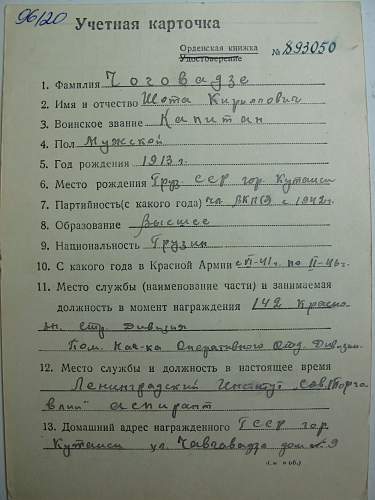 96/20
Учетная карточка
Орденская книжка
Удостоверение
№ 893050
1. Фамилия Чоговадзе
2. Имя и отчество Шота Кириллович
3. Воинское звание Капитан
4. Пол Мужской
5. Год рождения 1913 г.
6. Место рождения Груз ССР гор. Кутаиси
7. Партийность(с какого года) чл ВКП(б) с 1942 г.
8. Образование высшее
9. Национальность Грузин
10. С какого года в Красной Армии с VI-41 г. по II-46 г.
11. Место службы (наименование части) и занимаемая
должность в момент награждения 142 Красно-
зн. Стр. Дивизия
Пом. Нач-ка Оперативного Отд. Дивизии.
12. Место службы и должность в настоящее время
Ленинградский Институт Сов. Торго
влии аспирант
13. Домашний адрес награжденного ГССР гор.
Кутаиси ул. Чавчавадзе дом № 9